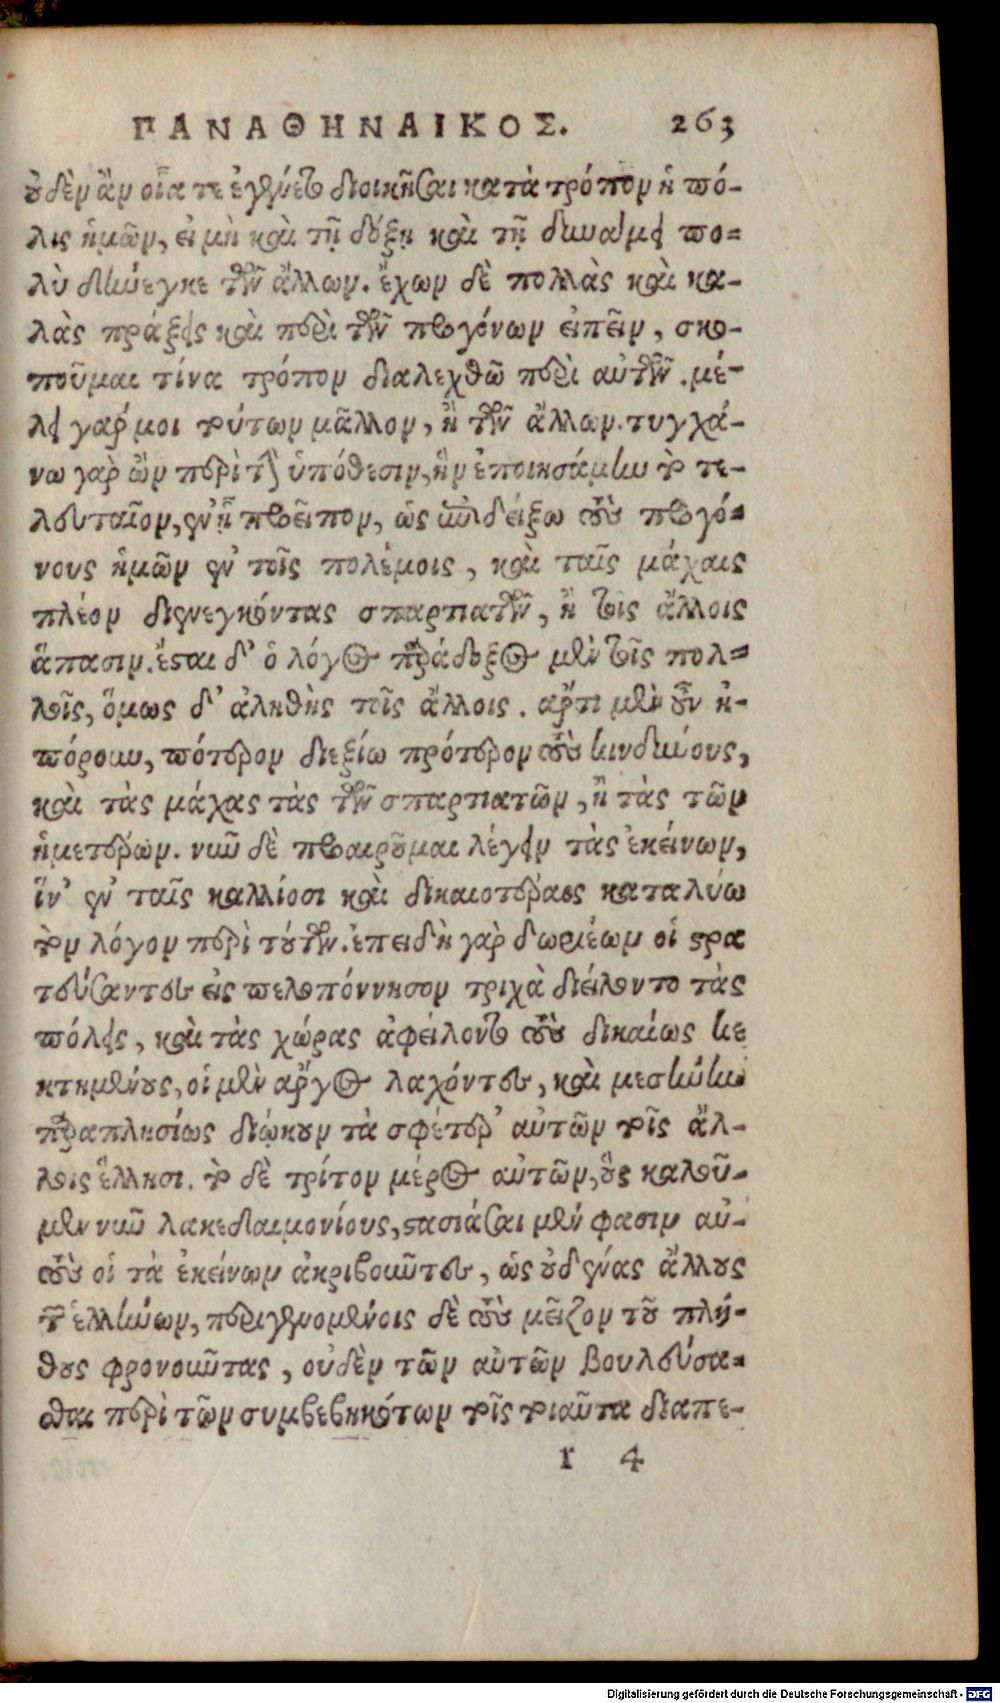 ΠΑΝΑΘΗΝΑΙΚΟΣ. 263
οὐδὲν ἂν οἵα τε ἐγένετο διοικῆσαι κατὰ τρόπον ἡ πό-
λις ἡμῶν, εἰ μὴ καὶ τῇ δόξῃ καὶ τῇ δυνάμει πο-
λὺ διήνεγκε τῶν ἄλλων. ἔχων δὲ πολλὰς καὶ κα-
λὰς πράξεις καὶ περὶ τῶν προγόνων εἰπεῖν, σκο-
ποῦμαι τίνα τρόπον διαλεχθῶ περὶ αὐτῶν. μέ-
λει γάρ μοι τούτων μᾶλλον, ἢ τῶν ἄλλων. τυγχά-
νω γὰρ ὢν περὶ τὴν ὑπόθεσιν, ἣν ἐποιησάμην τὸ τε-
λευταῖον, ἐν ᾗ προεῖπον, ὡς ἐπιδείξω τοὺς προγό-
νους ἡμῶν ἐν τοῖς πολέμοις, καὶ ταῖς μάχαις
πλέον διενεγκόντας σπαρτιατῶν, ἢ τοῖς ἄλλοις
ἅπασιν. ἔσται δ' ὁ λόγος παράδοξος μὲν τοῖς πολ-
λοῖς, ὅμως δ' ἀληθὴς τοῖς ἄλλοις. ἄρτι μὲν οὖν ἠ-
πόρουν, πότερον διεξίω πρότερον τοὺς κινδύνους,
καὶ τὰς μάχας τὰς τῶν σπαρτιατῶν, ἢ τὰς τῶν
ἡμετέρων. νῦν δὲ προαιροῦμαι λέγειν τὰς ἐκείνων,
ἵν' ἐν ταῖς καλλίοσι καὶ δικαιοτέραις καταλύω
τὸν λόγον περὶ τούτων. ἐπειδὴ γὰρ δωριέων οἱ στρα
τεύσαντες εἰς πελοπόννησον τριχὰ διείλοντο τὰς
πόλεις, καὶ τὰς χώρας ἀφείλοντο τοὺς δικαίως κε
κτημένους, οἱ μὲν ἄργος λαχόντες, καὶ μεσήνην
παραπλησίως διῴκουν τὰ σφέτερ' αὐτῶν τοῖς ἄλ-
λοις ἕλλησι. τὸ δὲ τρίτον μέρος αὐτῶν, οὓς καλοῦ-
μεν νῦν λακεδαιμονίους, στασιάσαι μέν φασιν αὐ-
τοὺς οἱ τὰ ἐκείνων ἀκριβοῦντες, ὡς οὐδένας ἄλλους
τῶν ἑλλήνων, περιγενομένοις δὲ τοὺς μεῖζον τοῦ πλή-
θους φρονοῦντας, οὐδὲν τῶν αὐτῶν βουλεύσα-
σθαι περὶ τῶν συμβεβηκότων τοῖς τοιαῦτα διαπε-
r 4
Digitalisierung gefördert durch die Deutsche Forschungsgemeinschaft - DFG